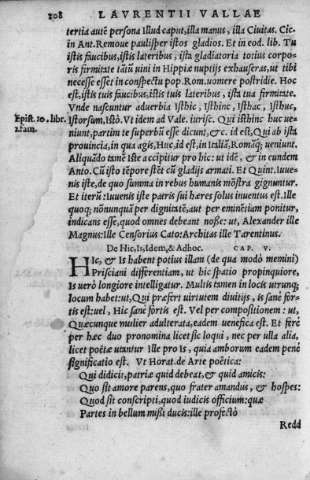 208 LAVRENTII VALLAE
tertia autē persona Illud caput, illa manus, illa Ciuitas. Cic.
in Ant. Remoue paulisper istos gladios. Et in eod. lib. Tu
istis faucibus, istis lateribus, ista gladiatoria totius corpo-
ris firmitate tātū uini in Hippiæ nuptijs exhauseras, ut tibi
necesse esset in conspectu pop. Rom. uomere postridie. Hoc
est, istis tuis faucibus, istis tuis lateribus, ista tua firmitate.
Vnde nascuntur aduerbia Isthic, Isthinc, Isthac, Isthuc,
Epist. 10. libr. Istorsum, Istò. Vt idem ad Vale. iurisc. Qui isthinc huc ue-
niunt, partim te superbū esse dicunt, &c. id est, Qui ab ista
prouincia, in qua agis, Huc, id est, in Italiā, Romāq; ueniunt.
Aliquādo tamē Iste accipitur pro hic: ut idē, & in eundem
Anto. Cū isto tēpore stēt cū gladijs armati. Et Quint. iuue-
nis iste, de quo summa in rebus humanis mōstra gignuntur.
Et iterū: Iuuenis iste patris sui hæres solus inuentus est. Ille
quoq; nōnunquā per dignitatē, aut per eminētiam ponitur,
indicans esse, quod omnes debeant nosse: ut, Alexander ille
Magnus: Ille Censorius Cato: Architas ille Tarentinus.
De Hic, Is, Idem, & Adhoc. CAP. V.
HIc, & Is habent potius illam (de qua modò memini)
Prisciani differentiam, ut hic spatio propinquiore,
Is uerò longiore intelligatur. Multis tamen in locis utrunq;
locum habet: ut, Qui præfert uirtutem diuitijs, is sanè for-
tis est: uel, Hic sanè fortis est. Vel per compositionem: ut,
Quæcunque mulier adultera, eadem uenefica est. Et ferè
per hæc duo pronomina licet sic loqui, nec per ulla alia,
licet poëtæ utantur Ille pro Is, quia amborum eadem penè
significatio est. Vt Horat. de Arte poëtica:
Qui didicit, patriæ quid debeat, & quid amicis:
Quo sit amore parens, quo frater amandus, & hospes:
Quod sit conscripti, quod iudicis officium: quæ
Partes in bellum missi ducis: ille profectò
Redd